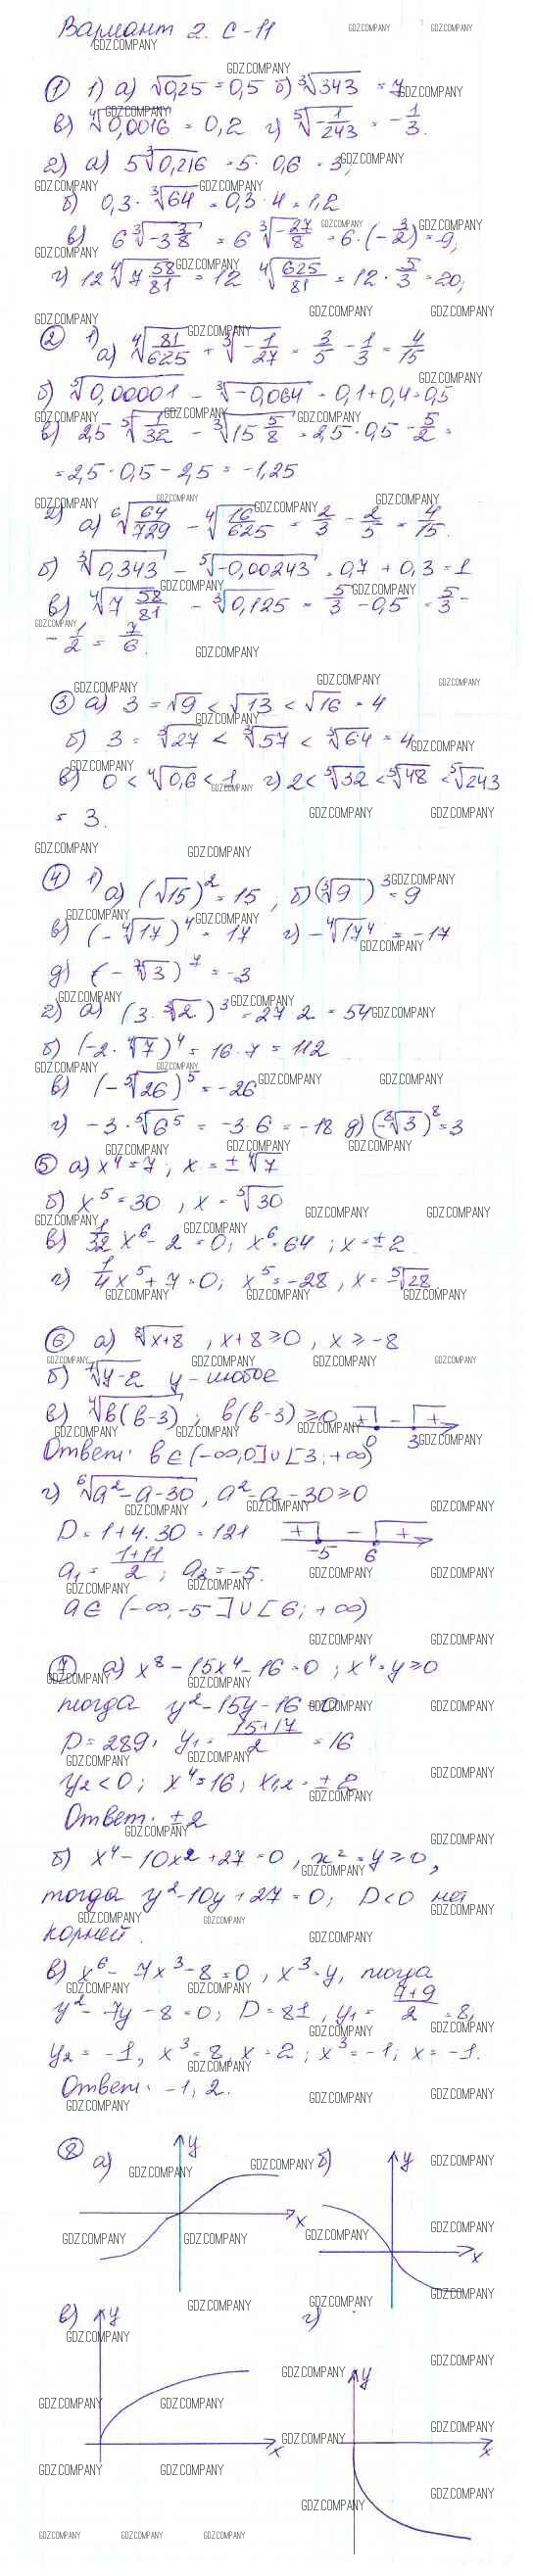 Вариант 2. С-11
① 1) а) √0,25 = 0,5 б) ³√343 = 7
в) ⁴√0,0016 = 0,2 г) ⁵√-1/243 = -1/3.
2) а) 5³√0,216 = 5·0,6 = 3;
б) 0,3·³√64 = 0,3·4 = 1,2
в) 6³√-3 3/8 = 6 ³√-27/8 = 6·(-3/2) = -9;
г) 12⁴√7 58/81 = 12 ⁴√625/81 = 12·5/3 = 20;
② 1) а) ⁴√81/625 + ³√-1/27 = 3/5 - 1/3 = 4/15
б) ⁵√0,00001 - ³√-0,064 = 0,1+0,4=0,5
в) 2,5 ⁵√1/32 - ³√15 5/8 = 2,5·0,5 - 5/2 =
= 2,5·0,5 - 2,5 = -1,25
2) а) ⁶√64/729 - ⁴√16/625 = 2/3 - 2/5 = 4/15.
б) ³√0,343 - ⁵√-0,00243 = 0,7 + 0,3 = 1
в) ⁴√7 58/81 - ³√0,125 = 5/3 - 0,5 = 5/3 -
- 1/2 = 7/6.
③ а) 3 = √9 < √13 < √16 = 4
б) 3 = ³√27 < ³√57 < ³√64 = 4
в) 0 < ⁴√0,6 < 1 г) 2 < ⁵√32 < ⁵√48 < ⁵√243
= 3.
④ 1) а) (√15)² = 15; б) (³√9)³ = 9
в) (-⁴√17)⁴ = 17 г) -⁴√17⁴ = -17
д) (-⁷√3)⁷ = -3
2) а) (3·³√2)³ = 27·2 = 54
б) (-2·⁴√7)⁴ = 16·7 = 112
в) (-⁵√26)⁵ = -26
г) -3·⁵√6⁵ = -3·6 = -18 д) (-⁸√3)⁸ = 3
⑤ а) x⁴ = 7; x = ±⁴√7
б) x⁵ = 30, x = ⁵√30
в) 1/32 x⁶ - 2 = 0; x⁶ = 64; x = ±2
г) 1/4 x⁵ + 7 = 0; x⁵ = -28, x = -⁵√28.
⑥ а) ⁸√x+8, x+8≥0, x ≥ -8
б) ⁷√y-2 y - любое
в) ⁴√b(b-3); b(b-3) ≥ 0 + - + 0 3
Ответ: b ∈ (-∞,0]∪[3;+∞)
г) ⁶√a²-a-30, a²-a-30≥0
D = 1+4·30 = 121 + - + -5 6
a₁ = 1+11/2; a₂ = -5.
a ∈ (-∞,-5]∪[6;+∞)
⑦ а) x⁸ - 15x⁴ - 16 = 0; x⁴ = y ≥ 0
тогда y² - 15y - 16 = 0
D = 289, y₁ = 15+17/2 = 16
y₂ < 0; x⁴ = 16; x₁,₂ = ±2
Ответ: ±2
б) x⁴ - 10x² + 27 = 0, x² = y ≥ 0,
тогда y² - 10y + 27 = 0; D < 0 нет
корней.
в) x⁶ - 7x³ - 8 = 0, x³ = y, тогда
y² - 7y - 8 = 0; D = 81, y₁ = 7+9/2 = 8,
y₂ = -1, x³ = 8, x = 2; x³ = -1; x = -1.
Ответ: -1, 2.
⑧ а) y x б) y x
в) y x г) y x
GDZ.COMPANY